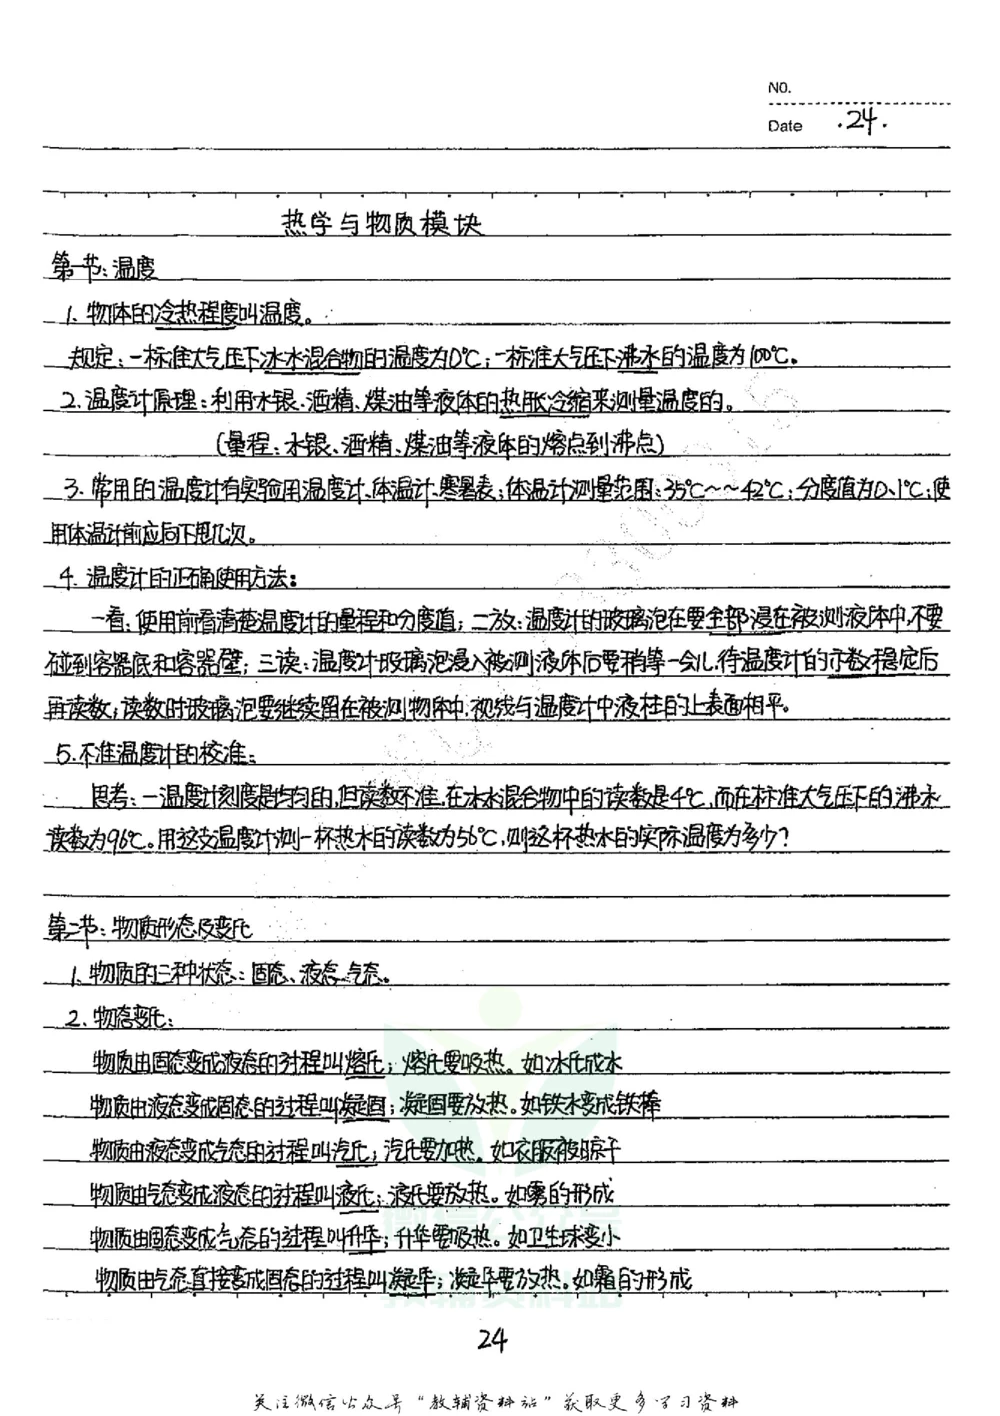 NO.
Date .24.
热学与物质模块
第一节:温度
1. 物体的冷热程度叫温度。
规定:一标准大气压下冰水混合物的温度为0℃;一标准大气压下沸水的温度为100℃。
2.温度计原理:利用水银、酒精、煤油等液体的热胀冷缩来测量温度的。
(量程:水银、酒精、煤油等液体的熔点到沸点)
3.常用的温度计有实验用温度计、体温计、寒暑表;体温计测量范围:35℃~~42℃;分度值为0.1℃;使
用体温计前应向下甩几次。
4. 温度计的正确使用方法:
一看:使用前看清楚温度计的量程和分度值;二放:温度计的玻璃泡在要全部浸在被测液体中,不要
碰到容器底和容器壁;三读:温度计玻璃泡浸入被测液体后要稍等一会儿,待温度计的示数稳定后
再读数,读数时玻璃泡要继续留在被测物体中,视线与温度计中液柱的上表面相平。
5.不准温度计的校准:
思考:一温度计刻度是均匀的,但读数不准,在冰水混合物中的读数是4℃,而在标准大气压下的沸水
读数为96℃。用这支温度计测一杯热水的读数为56℃,则这杯热水的实际温度为多少?
第二节:物质形态及变化
1.物质的三种状态:固态、液态、气态。
2.物态变化:
物质由固态变成液态的过程叫熔化;熔化要吸热。如冰化成水
物质由液态变成固态的过程叫凝固;凝固要放热。如铁水变成铁棒
物质由液态变成气态的过程叫汽化;汽化要加热。如衣服被晾干
物质由气态变成液态的过程叫液化;液化要放热。如雾的形成
物质由固态变成气态的过程叫升华;升华要吸热。如卫生球变小
物质由气态直接变成固态的过程叫凝华;凝华要放热。如霜的形成
24
关注微信公众号“教辅资料站”获取更多学习资料